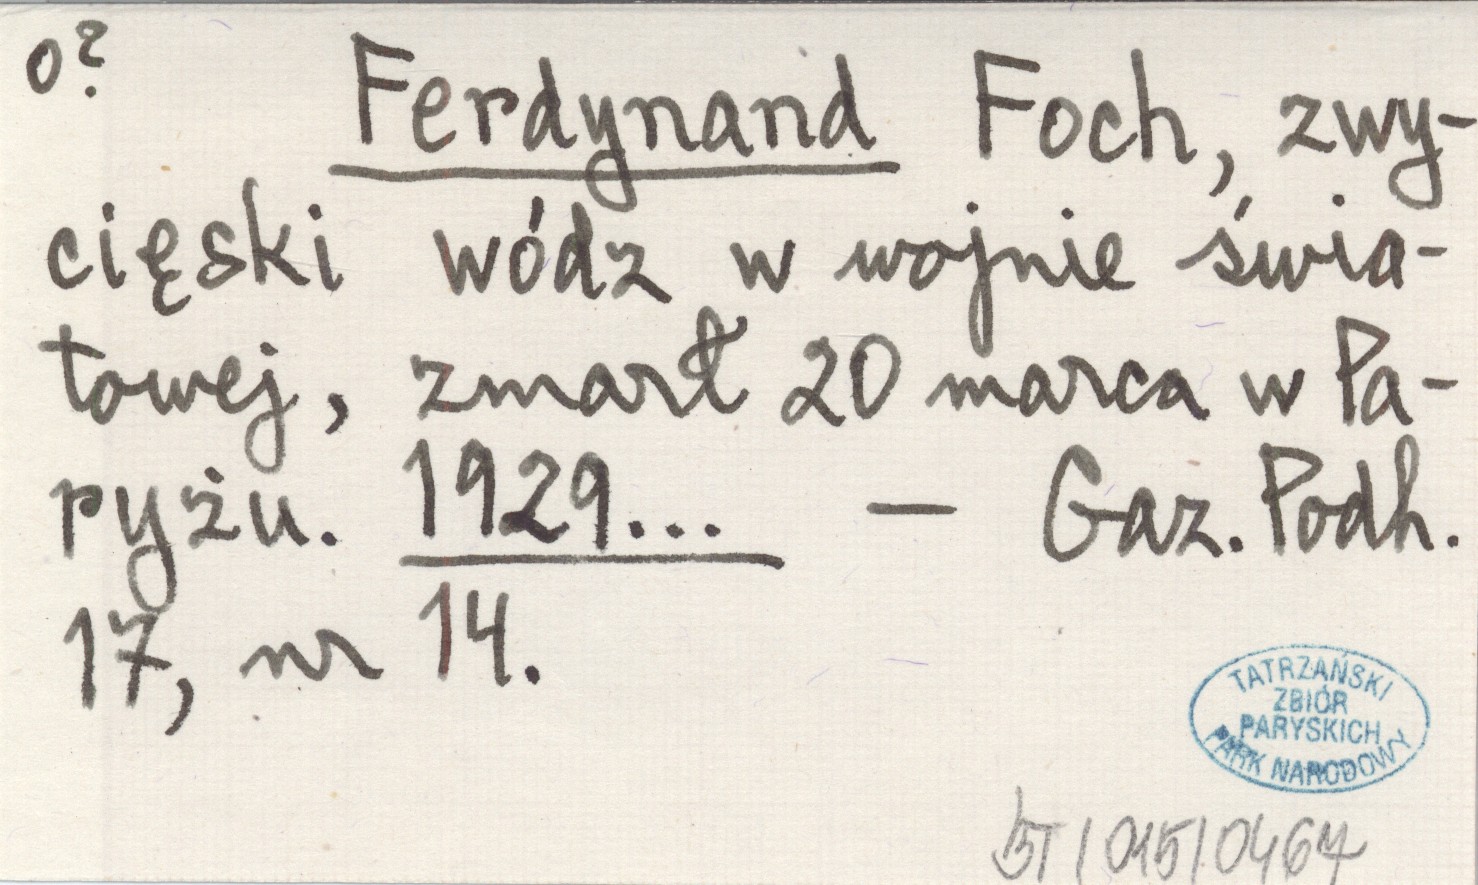 o?
Ferdynand Foch, zwy-
cięski wódz w wojnie świa-
towej, zmarł 20 marca w Pa-
ryżu. 1929... — Gaz. Podh.
17, nr 14.
TATRZAŃSKI
ZBIÓR
PARYSKICH
PARK NARODOWY
BT/015/0467